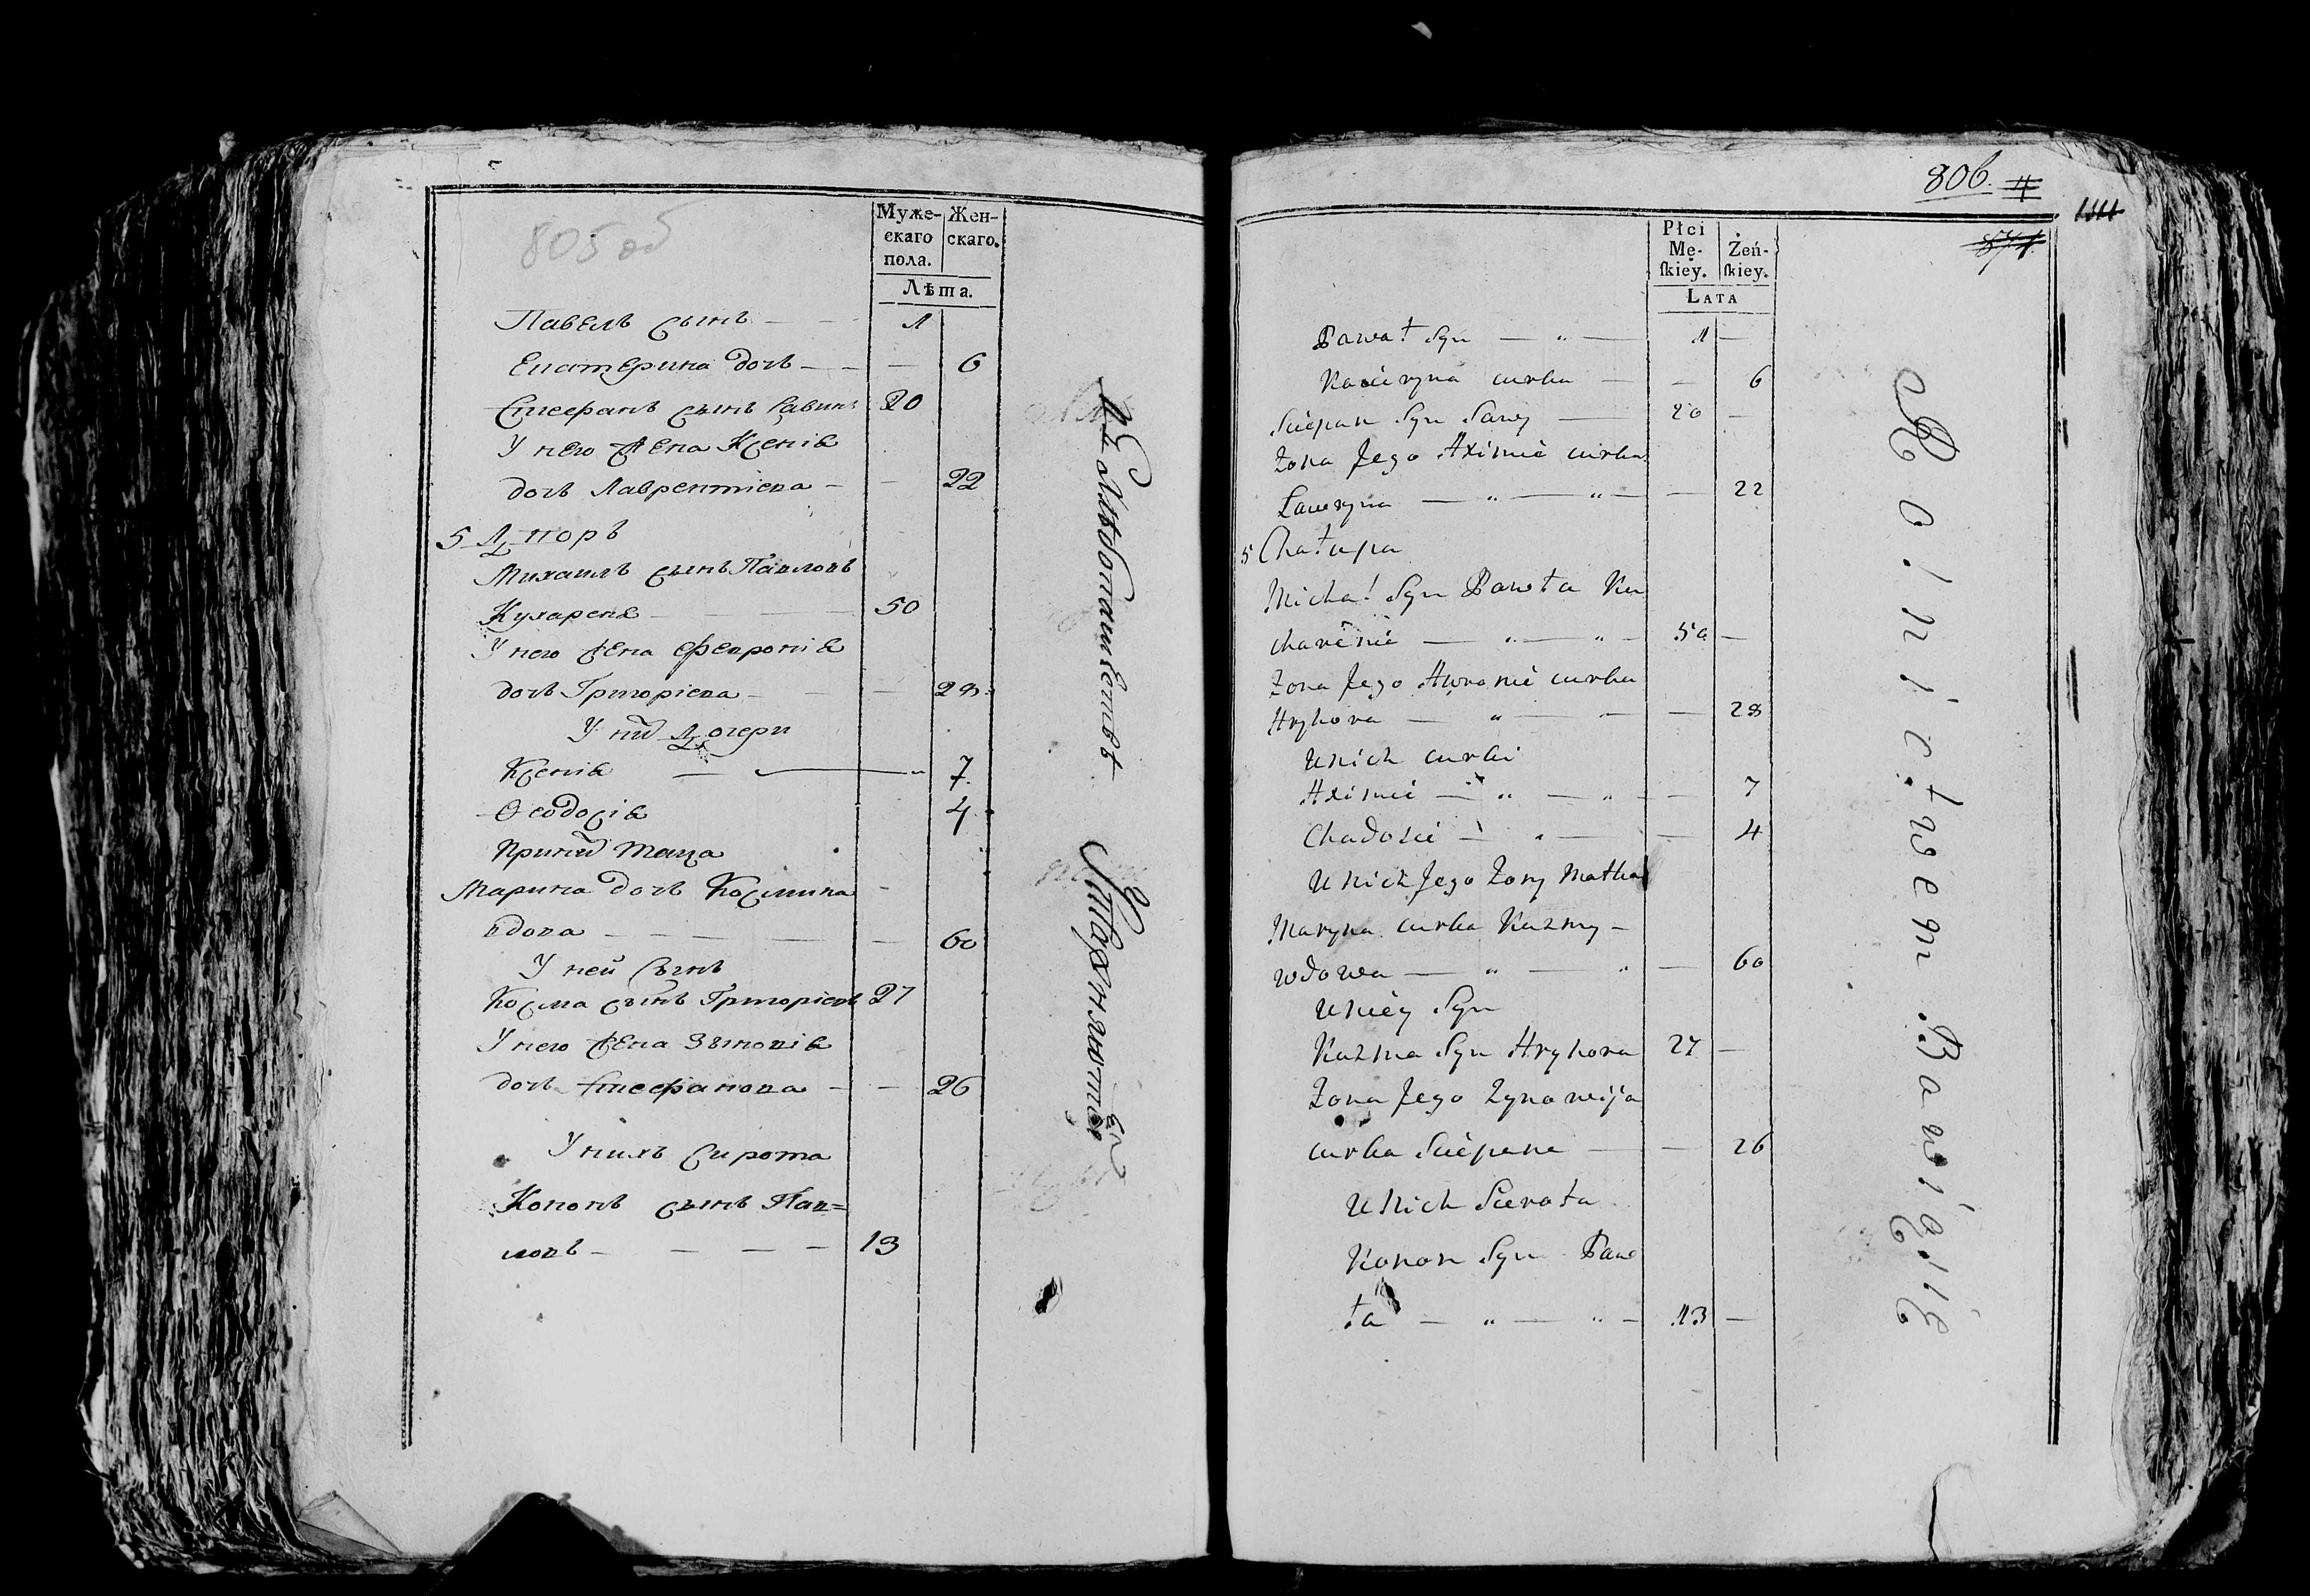 805 об
Муже-
скаго
пола.
Жен-
скаго.
Лѣта.
Павелъ сынъ — 1
Екатерина дочь — — 6
Стефанъ сынъ Савинъ 20
У него жена Ксенія
дочь Лаврентіева — — 22
5 Дворъ
Михаилъ сынъ Павловъ
Кухареня — 50
У него жена Февронія
дочь Григоріева — — 28
У них Дочери
Ксенія — — 7
Ѳеодосія 4
При них теща
Марина дочь Космина —
вдова — — — — — 60
У ней сынъ
Косма сынъ Григоріевъ 27
У него жена Зѣновія
дочь Стефанова — — 26
У нихъ Сирота
Кононъ сынъ Пав=
ловъ — — — — 13
Хлѣбопашествѣ
806.
Płci
Mę-
ſkiey.
Żeń-
ſkiey.
LATA
Pawał Syn — „ — 1 —
Kacieryna curka — — 6
Sciepan Syn Sawy — 20 —
Żona Jego Axinia curka
Ławryna — „ — „ — — 22
5 Chałupa
Michał Syn Pawła Ku
charenie — „ — „ — 50 —
Żona Jego Awronie curka
Hryhora — „ — — — 28
U nich curki
Axinie — „ — „ — — 7
Chadosie — „ — — 4
U nich Jego Żony Matka
Maryna curka Kuzmy —
wdowa — „ — „ — 60
U niey Syn
Kuzma Syn Hryhora 27 —
Żona Jego Zynowija
curka Sciepana — — 26
U nich Sierota
Konon Syn Paw
ła — „ — „ — 13 —
Rolnictwem Bawią się